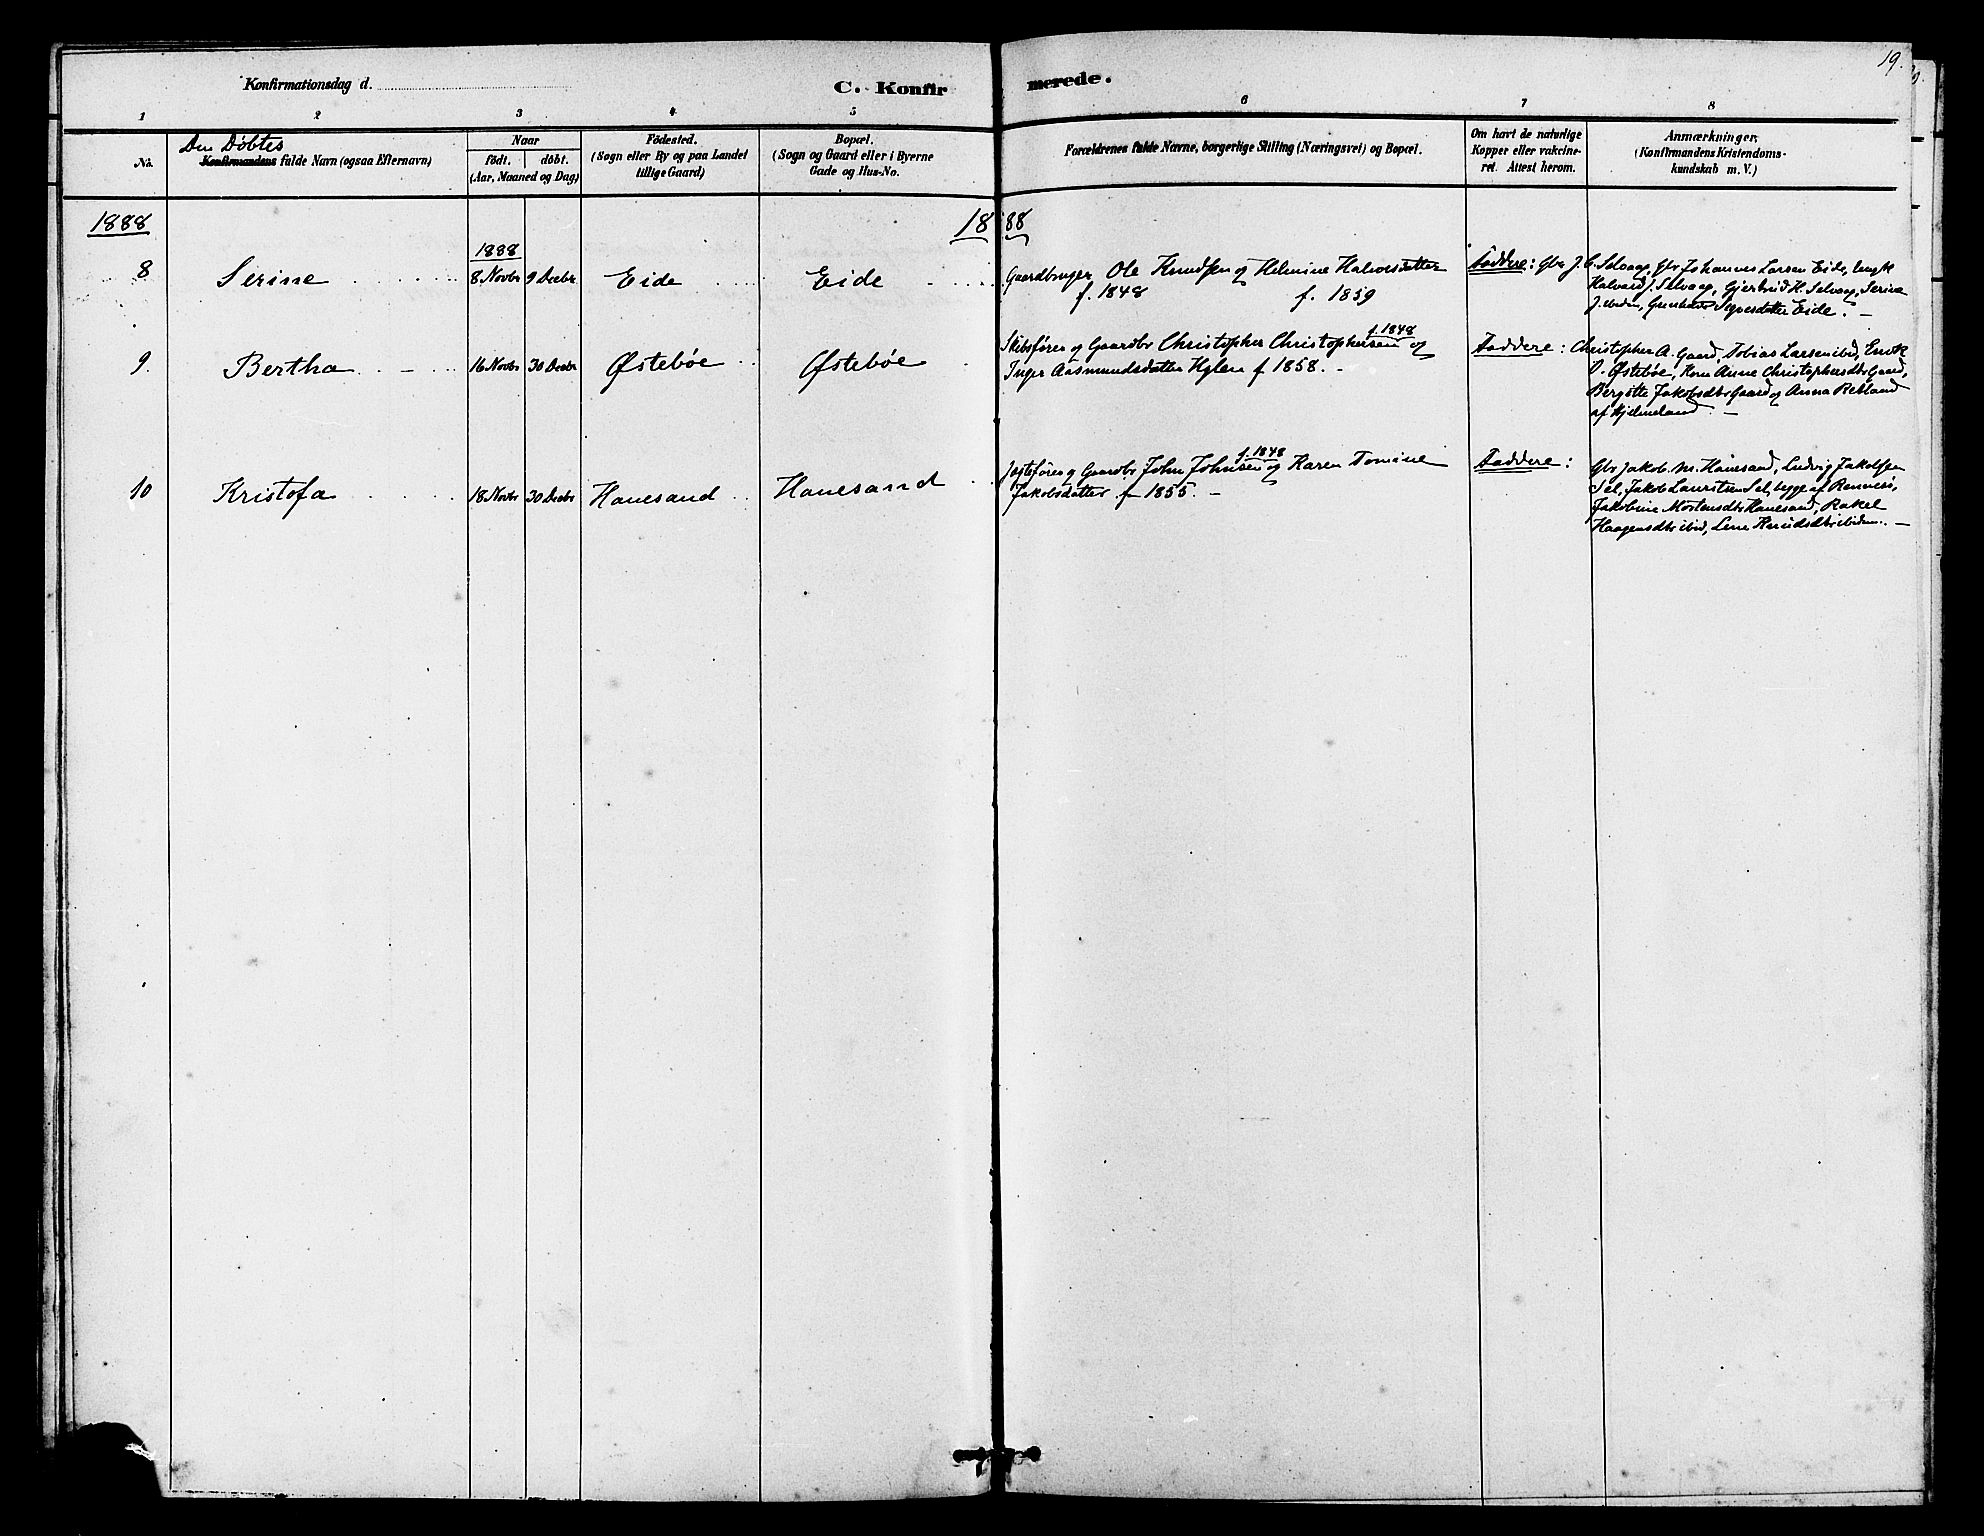 19.
Konfirmationsdag d.
C. Konfir
merede.
1 2 3 4 5 6 7 8
No.
Den Döbtes
Konfirmandens fulde Navn (ogsaa Efternavn)
Naar
födt. döbt.
(Aar, Maaned og Dag)
Födested.
(Sogn eller By og paa Landet
tillige Gaard)
Bopæl.
(Sogn og Gaard eller i Byerne
Gade og Hus-No.
Forældrenes fulde Navne, borgerlige Stilling (Næringsvei) og Bopæl.
Om havt de naturlige
Kopper eller vakcine-
ret. Attest herom.
Anmærkninger,
(Konfirmandens Kristendoms-
kundskab m. V.)
1888
1888
1888
8 Serine 8 Novbr 9 Decbr Eide Eide
Gaardbruger Ole Knudsen og Helmine Halvorsdatter
f. 1848 f. 1859
Faddere: Gbr J. C. Selvaag, Gbr Johannes Larsen Eide, Ungk
Halvard J. Selvaag, Gjertrud H. Selvaag, Serine
J. ibidem, Sjursdatter Eide. –
9. Bertha 16 Novbr 30 Decbr Østebøe Østebøe
Skibsfører og Gaardbr Christopher Christophersen f. 1848 og
Inger Aasmundsdatter Hylen f 1858. –
Faddere: Christopher A. Gaard, Tobias Larsen ibd, Enek
O. Østebøe, Kone Anne Christophersdtr Gaard,
Bergitte Jakobsdtr Gaard og Anna Rekland
af Hjelmeland. –
10 Kristofa 18 Novbr 30 Decbr Hanesand Hanesand
Jagtefører og Gaardbr John Johnsen f. 1848 og Karen Tomine
Jakobsdatter f 1855. –
Faddere: Gbr Jakob M. Hanesand, Ludvig Jakobsen
Sel, Jakob Lauritsen Sel, begge af Rennesö,
Jakobine Mortensdtr Hanesand, Rakel
Haagensdtr ibid, Lene Knudsdtr ibidem. –